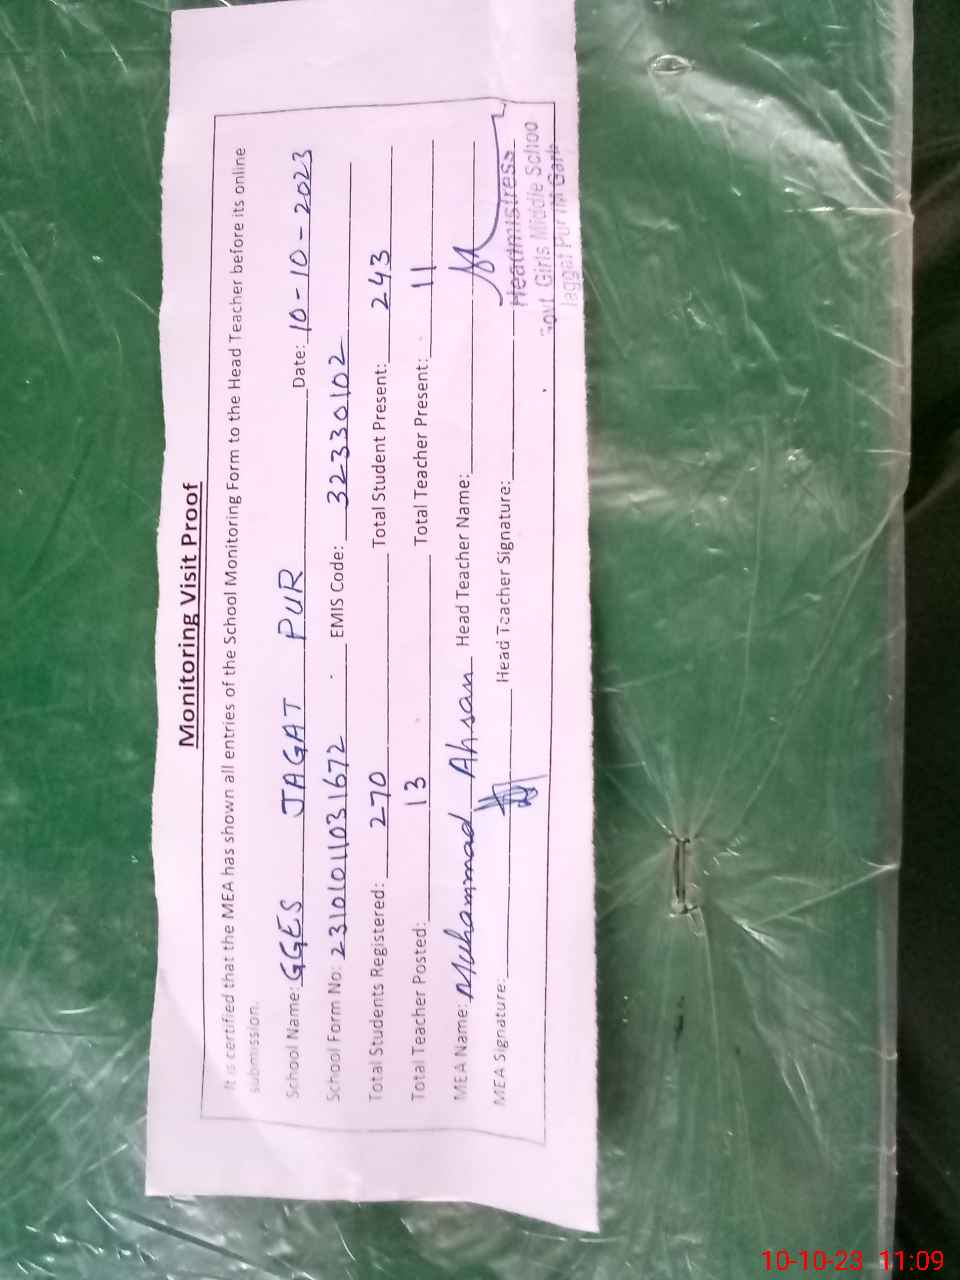 Monitoring Visit Proof
It is certified that the MEA has shown all entries of the School Monitoring Form to the Head Teacher before its online
submission.
School Name: GGES JAGAT PUR Date: 10-10-2023
School Form No: 2310101031672 EMIS Code: 32330102
Total Students Registered: 270 Total Student Present: 243
Total Teacher Posted: 13 Total Teacher Present: 11
MEA Name: Muhammad Ahsan Head Teacher Name:
MEA Signature: Head Teacher Signature:
Headmistress
Govt Girls Middle Schoo
Jaggat Pur
10-10-23 11:09